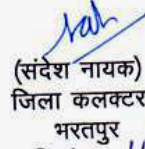 (संदेश नायक)
जिला कलक्टर
भरतपुर